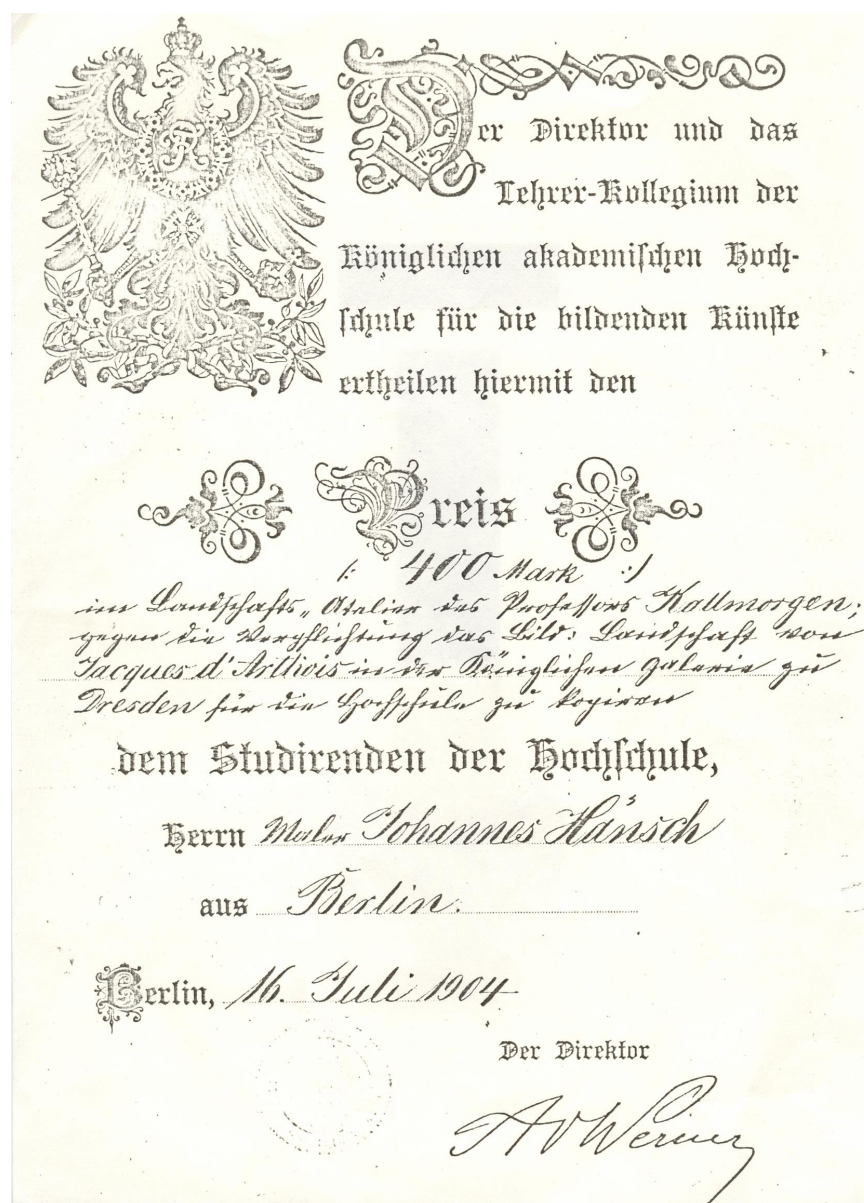 Der Direktor und das
Lehrer-Kollegium der
Königlichen akademischen Hoch-
schule für die bildenden Künste
ertheilen hiermit den
Preis
/: 400 Mark :/
im Landschafts-Atelier des Professors Kallmorgen,
gegen die Verpflichtung das Bild: Landschaft von
Jacques d'Arthois in der Königlichen Galerie zu
Dresden für die Hochschule zu kopiren
dem Studirenden der Hochschule,
Herrn Maler Johannes Hänsch
aus Berlin.
Berlin, 16. Juli 1904
Der Direktor
AvWerner